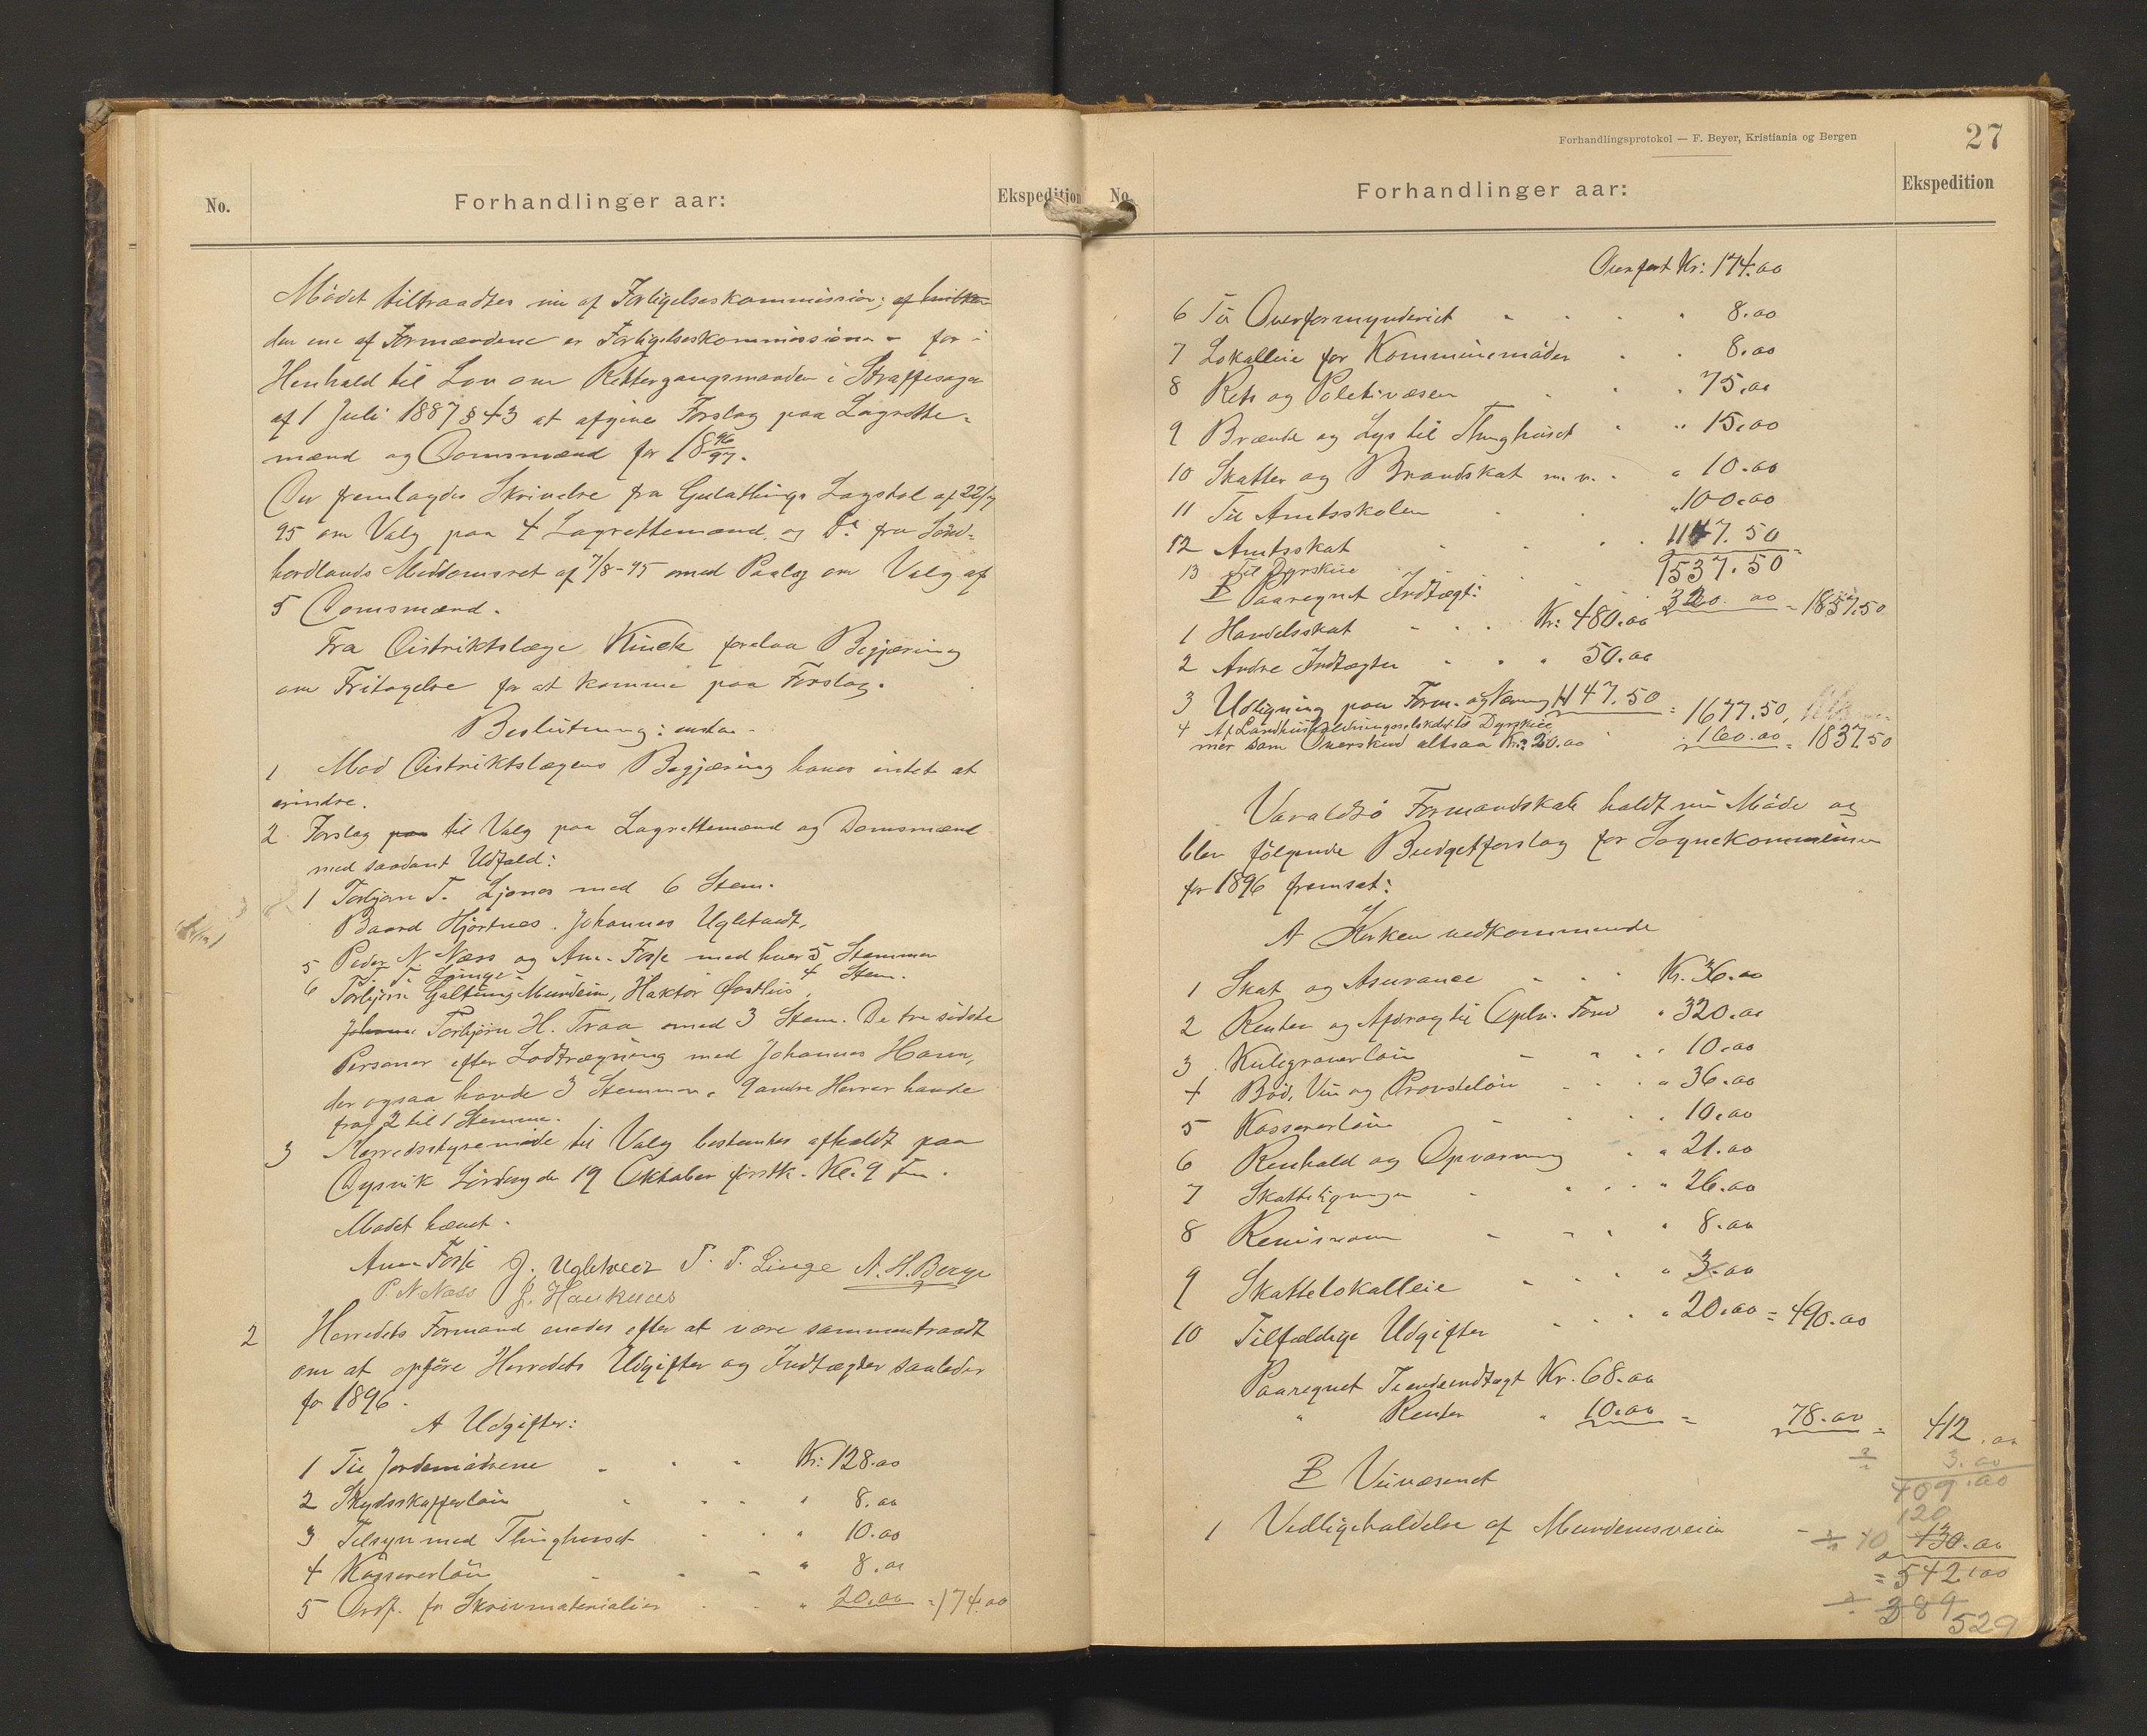 No.
Forhandlinger aar:
Ekspedition
Mødet tiltraadtes nu af Forligelseskommission; af hvilken
den ene af Formændene er Forligelseskommissionær for i
Henhold til Lov om Rettergangsmaaden i Straffesager
af 1 Juli 1887 § 43 at afgive Forslag paa Lagrette-
mænd og Domsmænd for 1896/97.
Der fremlagdes Skrivelse fra Gulathings Lagstol af 22/7
95 om Valg paa 4 Lagrettemænd og Do fra Sønd-
hordlands Meddomsret af 7/8-95 med Paalæg om Valg af
5 Domsmænd.
Fra Distriktslæge Kinck forelaa Begjæring
om Fritagelse for at komme paa Forslag.
Beslutning:
1 Mod Distriktslægens Begjæring haves intet at
erindre.
2 Forslag paa til Valg paa Lagrettemænd og Domsmænd
med saadant Udfald:
1 Torbjørn T. Ljones med 6 Stem.
Baard Hjortnæs. Johannes Ugletvedt,
5 Peder N. Næss og Ame Fosse med hver 5 Stemmer
T. T. Linge
6 Torbjørn Galtung Mundeim, Haktor Østhus, 4 Stem.
Johannes Torbjørn H. Traa med 3 Stem. De tre sidste
Personer efter Lodtrægning med Johannes
der ogsaa havde 3 Stemmer. 9 andre Herrer havde
fra 2 til 1 Stemme.
3 Herredsstyremøde til Valg bestemtes afholdt paa
Øysvik Lørdag den 19 Oktober førstk. Kl. 9 Fm.
Mødet hævet.
Ame Fosse J. Ugletveet T. T. Linge A. H. Berge
P. N. Næss J. Haukanes
2 Herredets Formænd enedes efter at være sammentraadt
om at opføre Herredets Udgifter og Indtægter saaledes
for 1896.
A Udgifter:
1 Til Jordemødrene Kr: 128.00
2 Skydsskafferløn " 8.00
3 Tilsyn med Thinghuset " 10.00
4 Kassererløn " 8.00
5 Ordf. for Skrivmaterialier " 20.00 = 174.00
Forhandlingsprotokol — F. Beyer, Kristiania og Bergen
27
No.
Forhandlinger aar:
Ekspedition
Overført Kr: 174.00
6 Til Overformynderiet " 8.00
7 Lokalleie for Kommunemøder " 8.00
8 Rets og Politivæsen " 75.00
9 Brænde og Lys til Thinghuset " 15.00
10 Skatter og Brandskat m. v. " 10.00
11 Til Amtsskolen " 100.00
12 Amtsskat 1147.50
1537.50
13 Til Dyrskue 320.00 = 1857.50
B Paaregnet Indtægt:
1 Handelsskat Kr: 480.00
2 Andre Indtægter " 50.00
3 Udligning paa Form. og Næring 1147.50 = 1677.50
4 Af Landhusholdningsselskabet til Dyrskue 160.00 = 1837.50
mer som Overskud altsaa Kr: 20.00
Varaldsø Formandskab holdt nu Møde og
blev følgende Budgetforslag for Sognekommunen
for 1896 fremsat:
A Kirken vedkommende
1 Skat og Asurance Kr. 36.00
2 Renter og Afdrag til Oplv. Fond " 320.00
3 Kulegraverløn " 10.00
4 Brød, Vin og Provsteløn " 36.00
5 Kassererløn " 10.00
6 Renhold og Opvarming " 21.00
7 Skatteligninger " 26.00
8 " 8.00
9 Skattelokalleie " 3.00
10 Tilfældige Udgifter " 20.00 = 490.00
Paaregnet Tiendeindtægt Kr. 68.00
" Renter " 10.00 = 78.00 = 412.00
3.00
409.00
B Veivæsenet
120
1 Vedligeholdelse af Mundemsveien 10 130.00
= 542.00
389
529